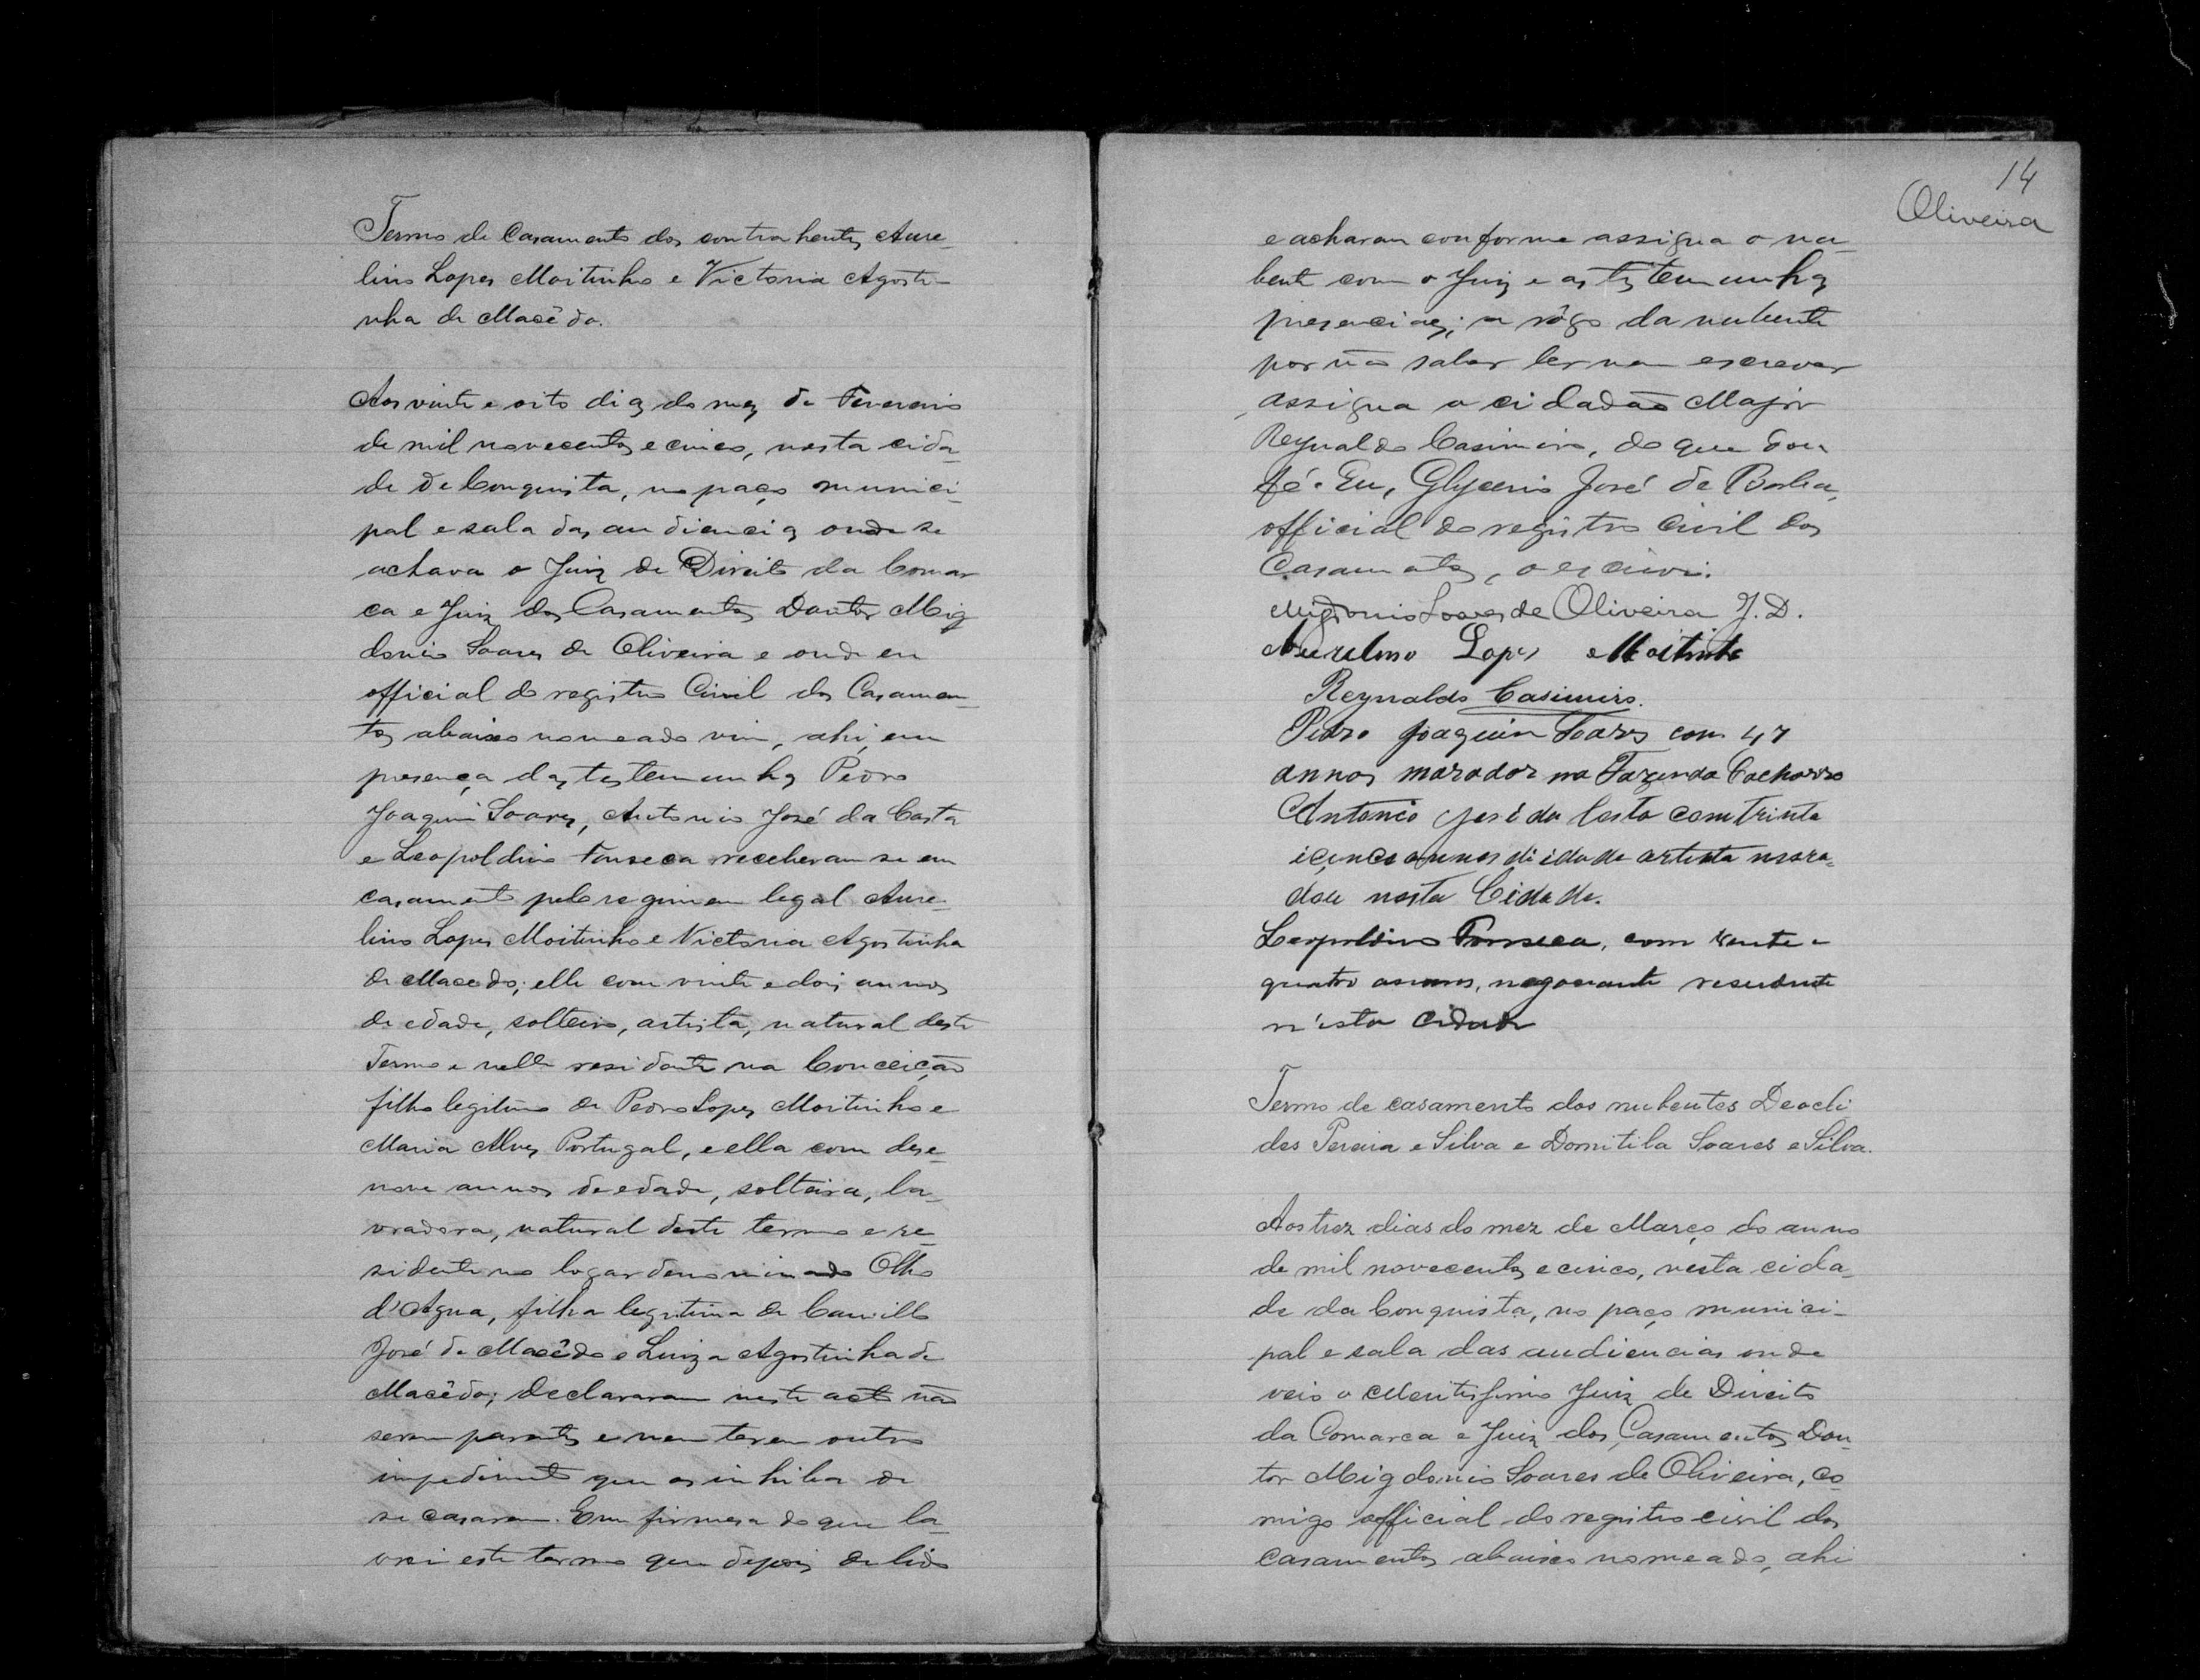 Termo de Casamento dos contrahentes Aure-
lino Lopes Moitinho e Victoria Agosti-
nha de Macêdo.
Aos vinte e oito dias do mez de Fevereiro
de mil novecentos e cinco, nesta cida-
de de Conquista, no paço munici-
pal e sala das audiencias onde se
achava o Juiz de Direito da Comar
ca e Juiz dos Casamentos Doutor Mig
donio Soares de Oliveira e onde eu
official do registro Civil dos Casamen-
tos abaixo nomeado vim, ahi, em
presença das testemunhas Pedro
Joaquim Soares, Antonio José da Costa
e Leopoldino Fonseca receberam se em
casamento pelo regimem legal Aure-
lino Lopes Moitinho e Victoria Agostinha
de Macedo; elle com vinte e dois annos
de edade, solteiro, artista, natural deste
Termo e nelle residente na Conceição
filho legitimo de Pedro Lopes Moitinho e
Maria Alves Portugal, e ella com dese-
nove annos de edade, solteira, la-
vradora, natural deste termo e re-
sidente no logar denominado Olho
d'Agua, filha legitima de Camillo
José de Macêdo e Luiza Agostinha de
Macêdo; declararam neste acto não
serem parentes e nem terem outro
impedimento que os inhiba de
se casarem. Em firmesa do que la-
vrei este termo que depois de lido
14
Oliveira
e acharam conforme assigna o nu-
bente com o Juiz e as testemunhas
presenciaes; a rôgo da nubente
por não saber ler nem escrever
assigna o cidadão Major
Reynaldo Casimiro, do que dou
fé. Eu, Glycerio José de
official do registro Civil dos
Casamentos, o escrevi.
Migdonio Soares de Oliveira J. D.
Aurelino Lopes Moitinho
Reynaldo Casimiro.
Pedro Joaquim Soares com 47
annos morador na Fazenda Cachorro
Antonio José da Costa com trinta
icinco annos di idade artista mora-
dou nesta Cidade.
Leopoldino Fonseca, com vente e
quatro annos, negociante residente
n'esta cidade
Termo de casamento dos nubentes Deocli
des Pereira e Silva e Domitila Soares e Silva.
Aos trez dias do mez de Março do anno
de mil novecentos e cinco, nesta cida-
de da Conquista, no paço munici-
pal e sala das audiencias onde
veio o Meritissimo Juiz de Direito
da Comarca e Juiz dos Casamentos Dou-
tor Migdonio Soares de Oliveira, co-
migo official do registro civil dos
casamentos abaixo nomeado, ahi